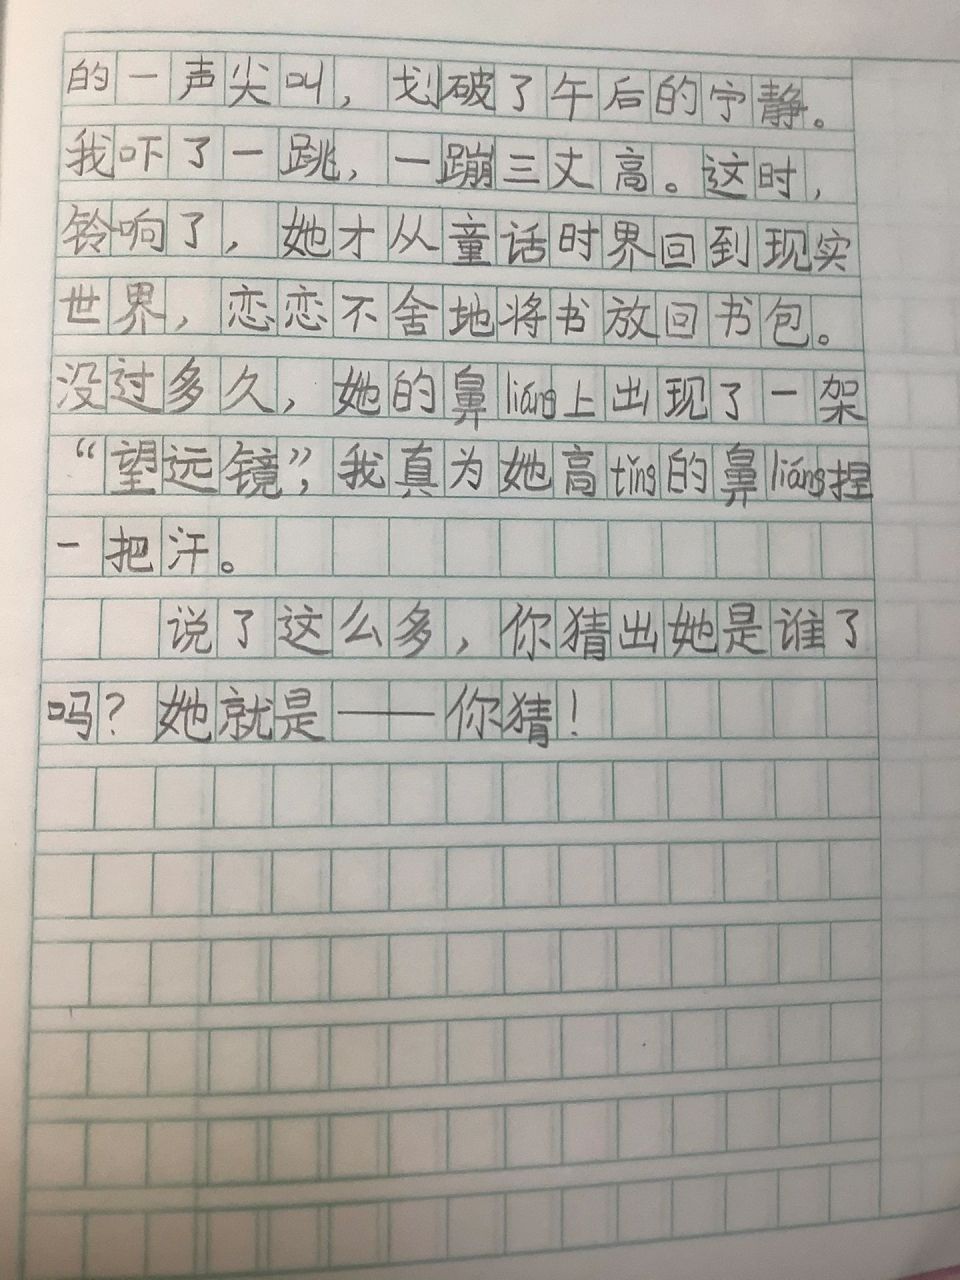 的一声尖叫，划破了午后的宁静。
我吓了一跳，一蹦三丈高。这时，
铃响了，她才从童话时界回到现实
世界，恋恋不舍地将书放回书包。
没过多久，她的鼻liáng上出现了一架
“望远镜”，我真为她高tǐng的鼻liáng捏
一把汗。
说了这么多，你猜出她是谁了
吗？她就是——你猜！